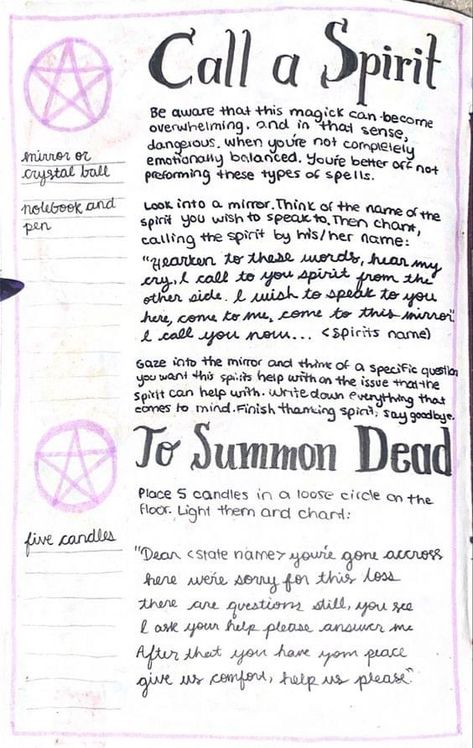 Call a Spirit
mirror or
crystal ball
notebook and
pen
Be aware that this magick can become
overwhelming. and in that sense,
dangerous. when you're not completely
emotionally balanced. You're better off not
preforming these types of spells.
Look into a mirror. Think of the name of the
spirit you wish to speak to. Then chant,
calling the spirit by his/her name:
"Hearken to these words, hear my
cry, I call to you spirit from the
other side. I wish to speak to you
here, come to me, come to this mirror".
I call you now... <spirits name)
Gaze into the mirror and think of a specific question
you want this spirits help with on the issue that the
spirit can help with. Write down everything that
comes to mind. Finish thanking spirit, say goodbye.
To Summon Dead
five candles
Place 5 candles in a loose circle on the
floor. Light them and chant:
"Dear <state name> you're gone accross
here we're sorry for this loss
there are questions still, you see
I ask your help please answer me
After that you have yom peace
give us comfort, help us please".